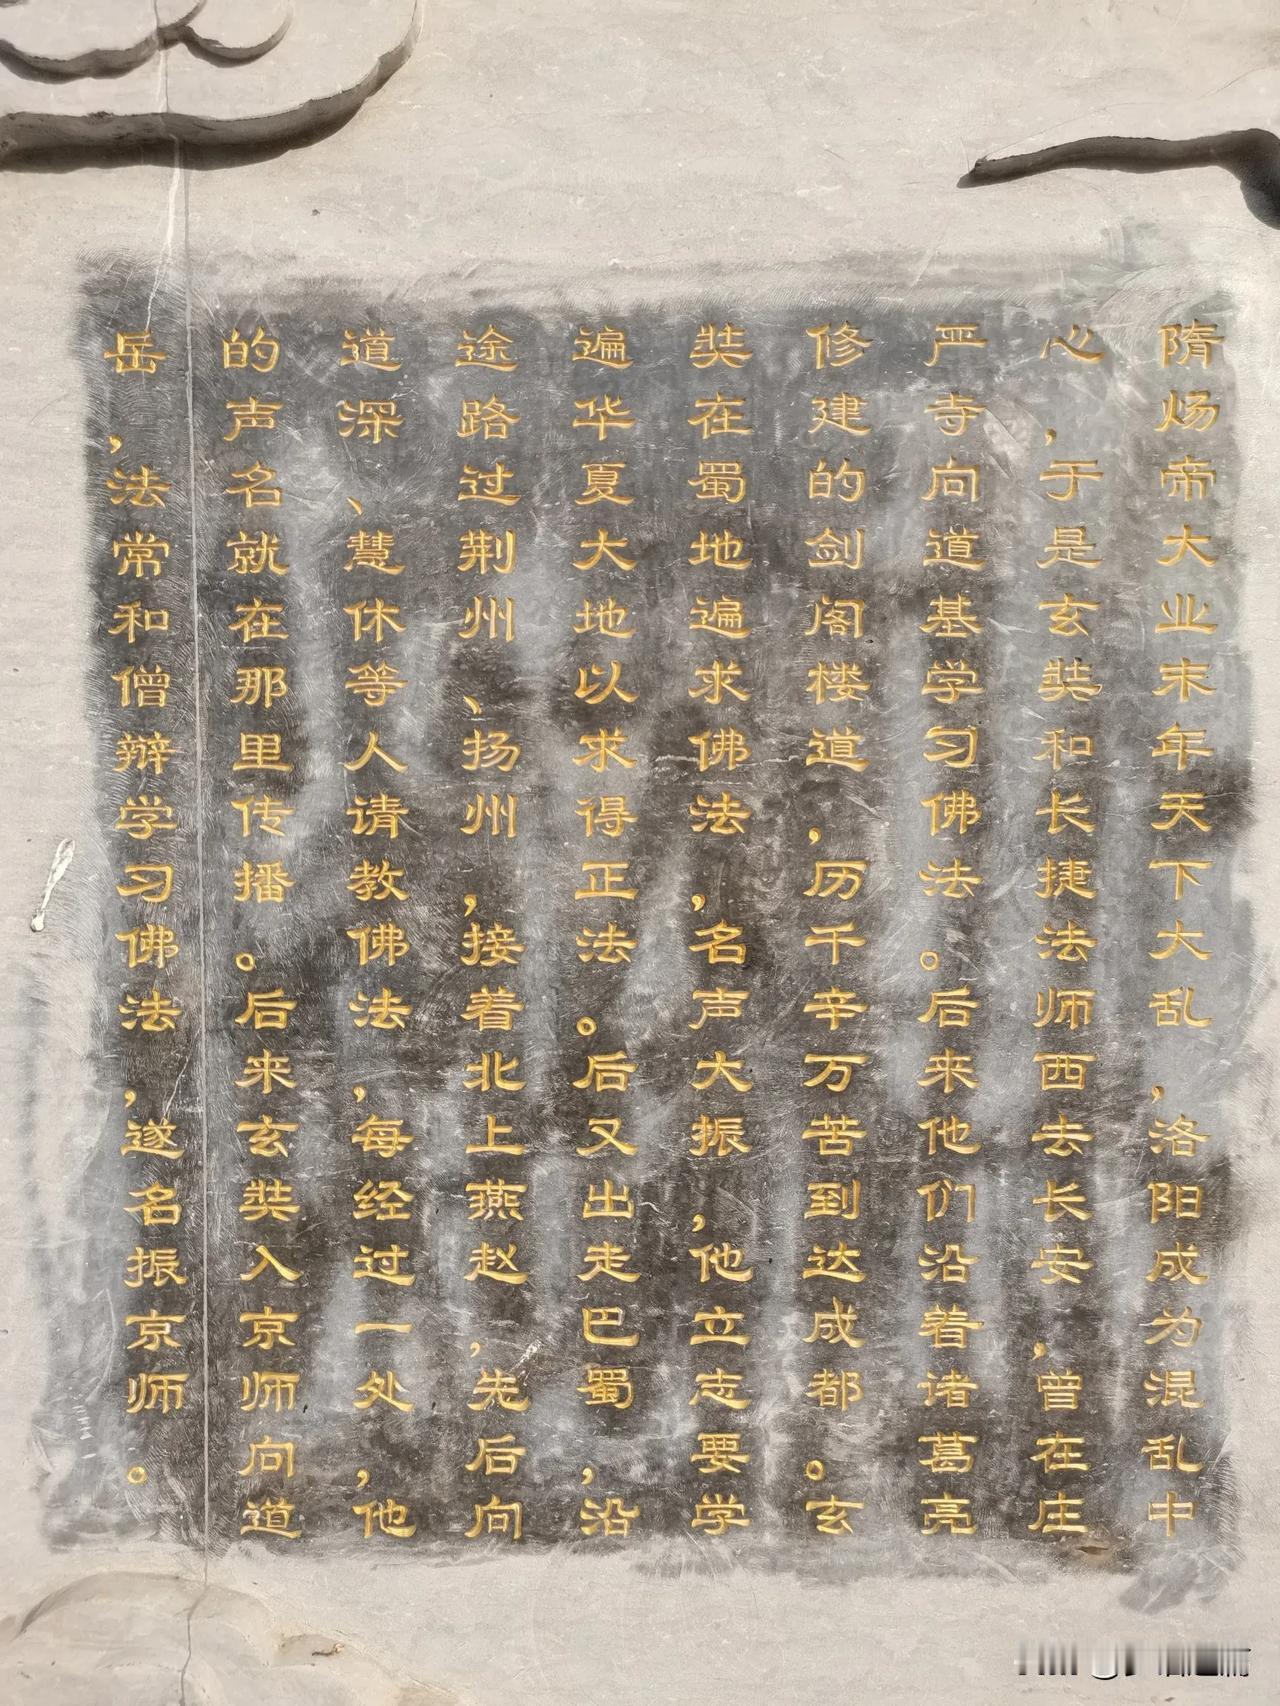 隋炀帝大业末年天下大乱，洛阳成为混乱中
心，于是玄奘和长捷法师西去长安，曾在庄
严寺向道基学习佛法。后来他们沿着诸葛亮
修建的剑阁楼道，历千辛万苦到达成都。玄
奘在蜀地遍求佛法，名声大振，他立志要学
遍华夏大地以求得正法。后又出走巴蜀，沿
途路过荆州、扬州，接着北上燕赵，先后向
道深、慧休等人请教佛法，每经过一处，他
的声名就在那里传播。后来玄奘入京师向道
岳，法常和僧辩学习佛法，遂名振京师。